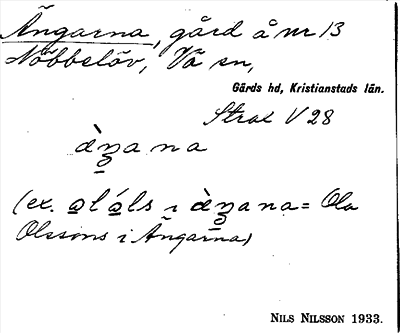 Ängarna, gård å nr 13
Nöbbelöv, Vä sn,
Gärds hd, Kristianstads län.
Strax V 28
àŋana
(ex. a̲lá̲ls ı àŋana = Ola
Olssons i Ängarna)
NILS NILSSON 1933.